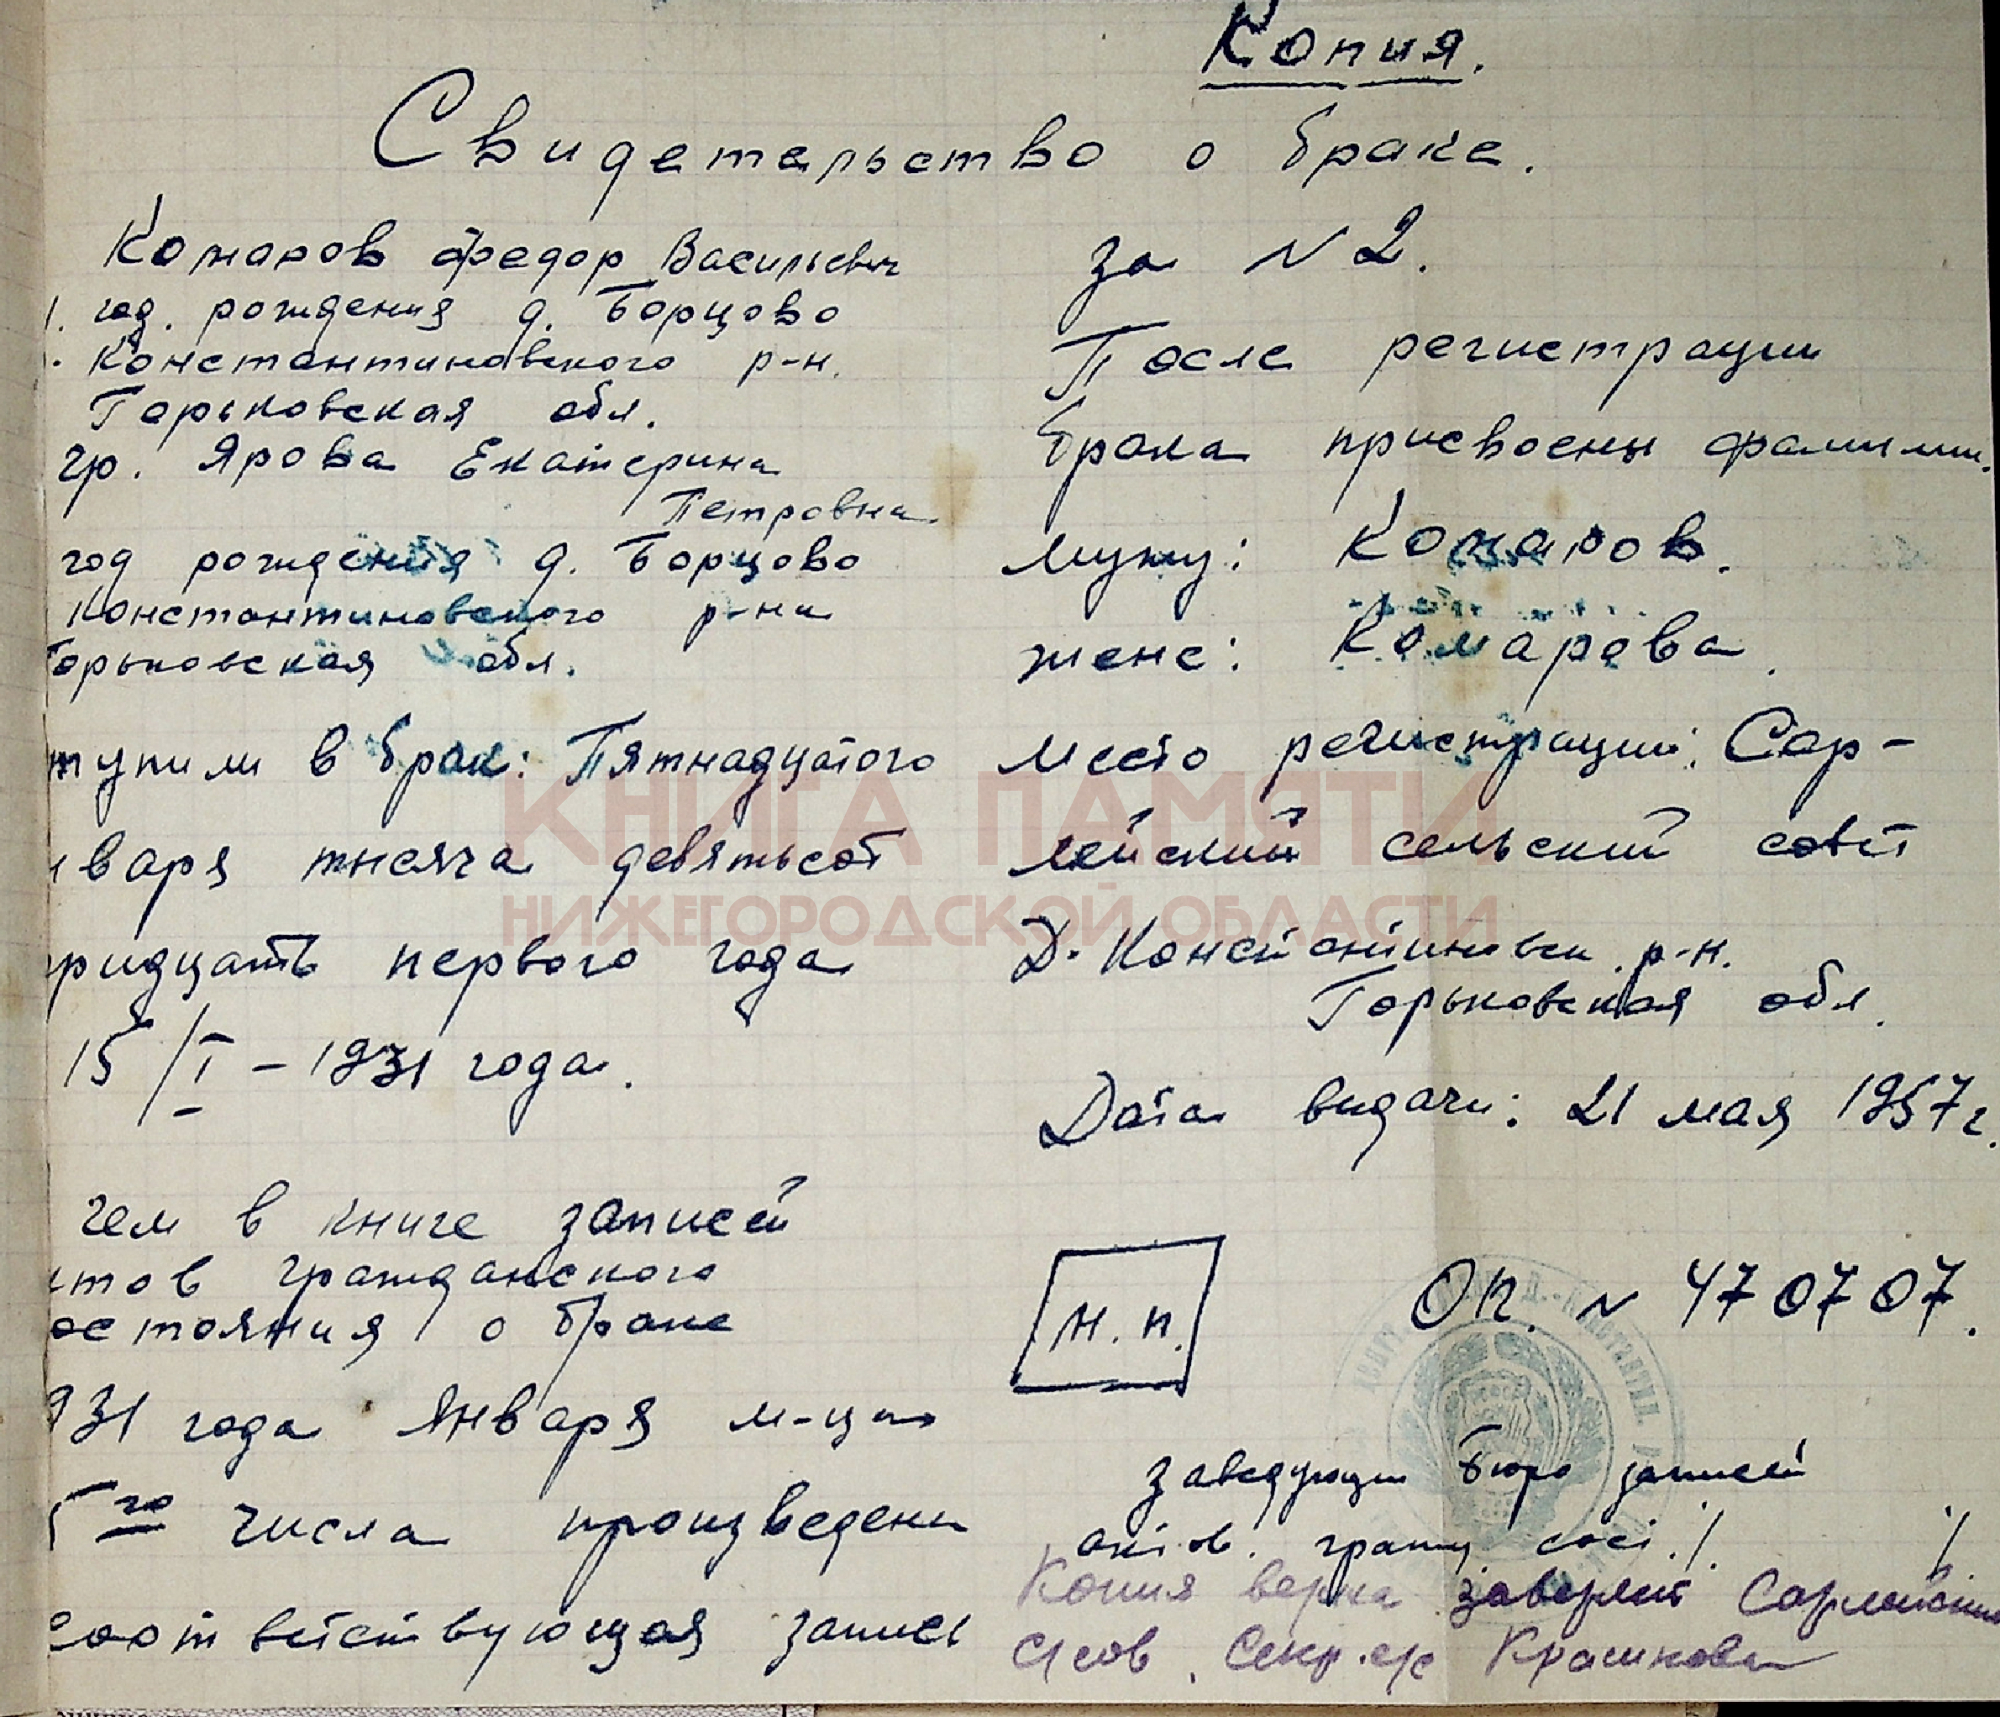 Копия.
Свидетельство о браке.
Комаров Федор Васильевич
год. рождения д. Борцово
Константиновского р-н.
Горьковская обл.
гр. Ярова Екатерина
Петровна
год рождения д. Борцово
Константиновского р-на
Горьковская обл.
тупили в брак: Пятнадцатого
варя тысяча девятьсот
ридцать первого года
15/I – 1931 года.
чем в книге записей
тов гражданского
остояния о браке
931 года Января м-ца
5го числа произведена
соответствующая запись
за N 2.
После регистрации
брака присвоены фамилии.
мужу: Комаров.
жене: Комарова.
место регистрации: Сар-
лейский сельский совет
Д. Константиновск. р-н.
Горьковская обл.
Дата выдачи: 21 мая 1957 г.
М. п.
N 470707.
Заведующий Бюро записей
актов. гражд сост. /. /
Копия верна заверяет Сарлейский
с/сов. Секр. с/с
КНИГА ПАМЯТИ
НИЖЕГОРОДСКОЙ ОБЛАСТИ